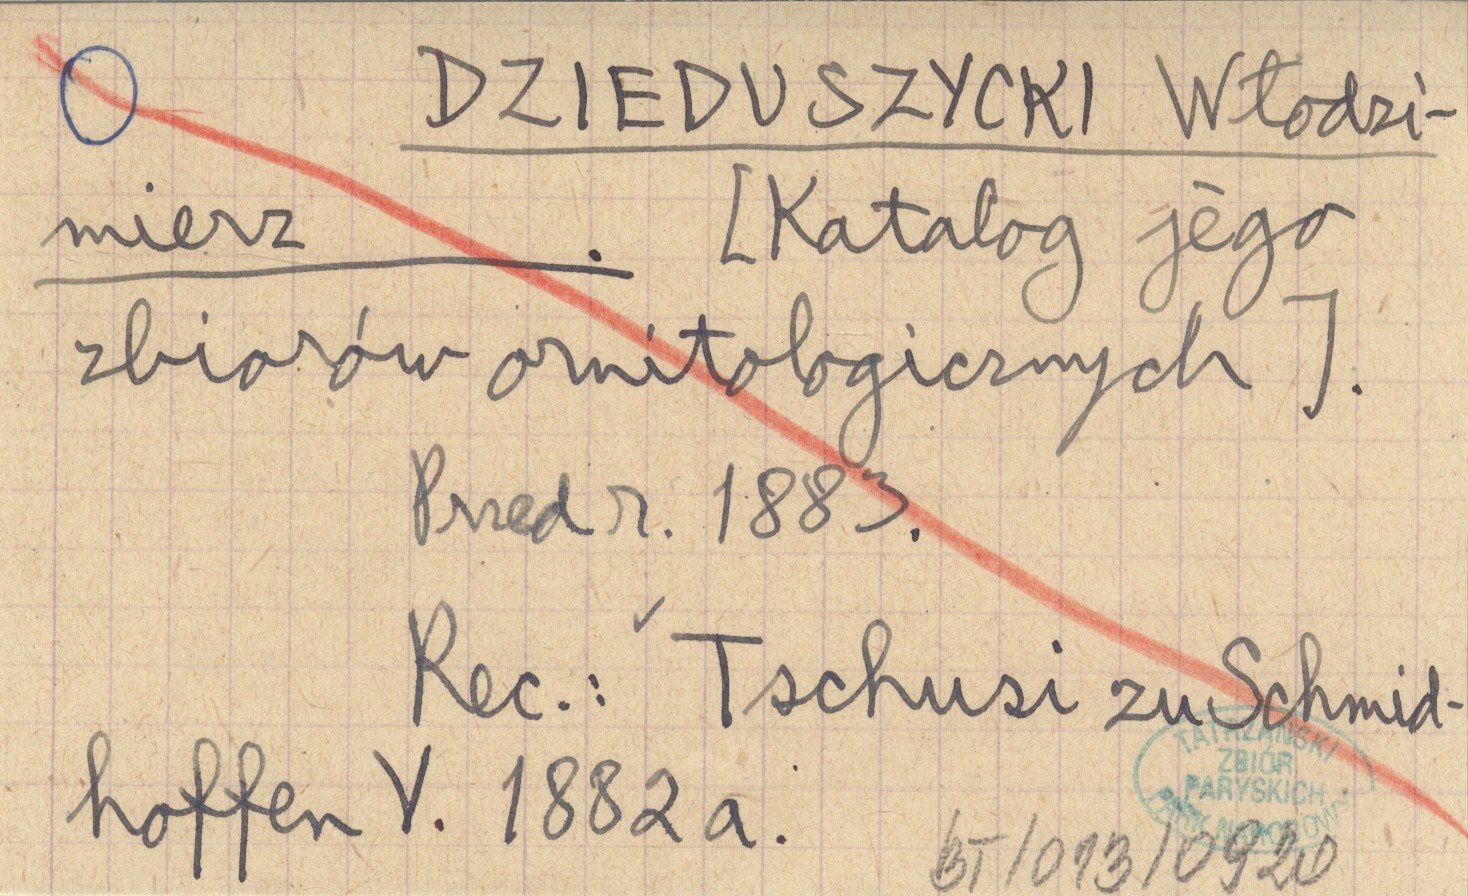 DZIEDUSZYCKI Włodzi-
mierz . [Katalog jego
zbiorów ornitologicznych].
Przed r. 1883.
Rec.: Tschusi zu Schmid-
hoffen V. 1882 a.
TATRZAŃSKI
ZBIÓR
PARYSKICH
BT/013/0920